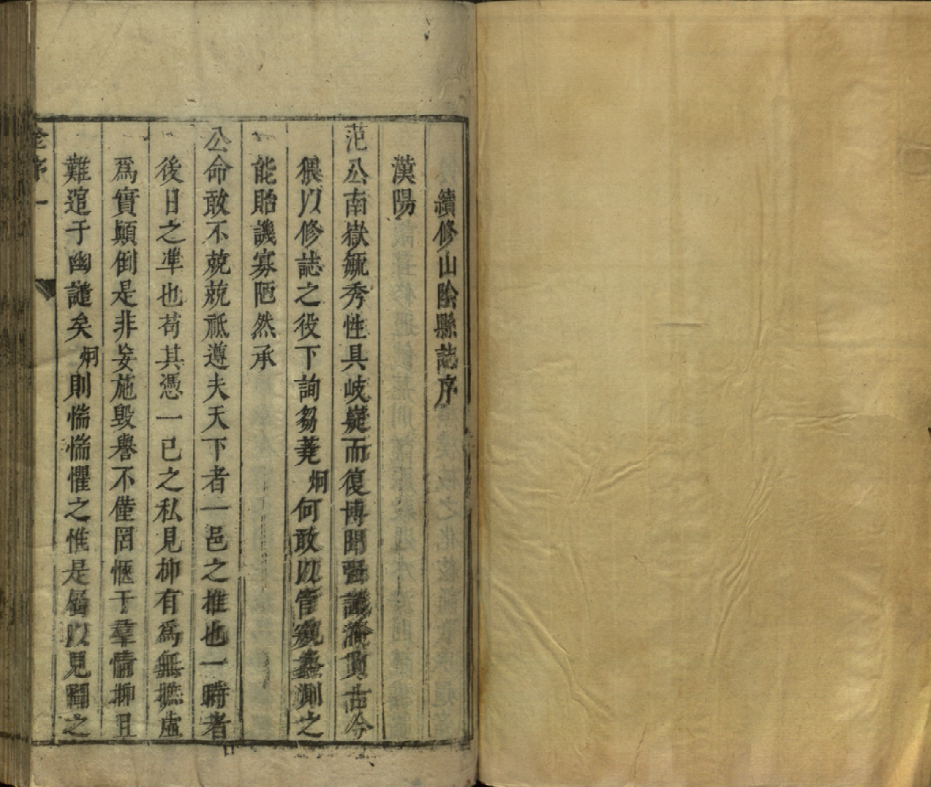 續修山陰縣誌序
漢陽
范公南嶽毓秀性具岐嶷而復博聞彊識濟貫古今
猥以修誌之役下詢芻蕘炯何敢以管窺蠡測之
能貽譏寡陋然承
公命敢不兢兢祗遵夫天下者一邑之推也一時者
後日之準也苟其憑一己之私見抑有爲無摭虛
爲實顛倒是非妄施毀譽不僅罔愜于羣情抑且
難逭于幽譴矣炯則惴惴懼之惟是屬以見聞之
序一